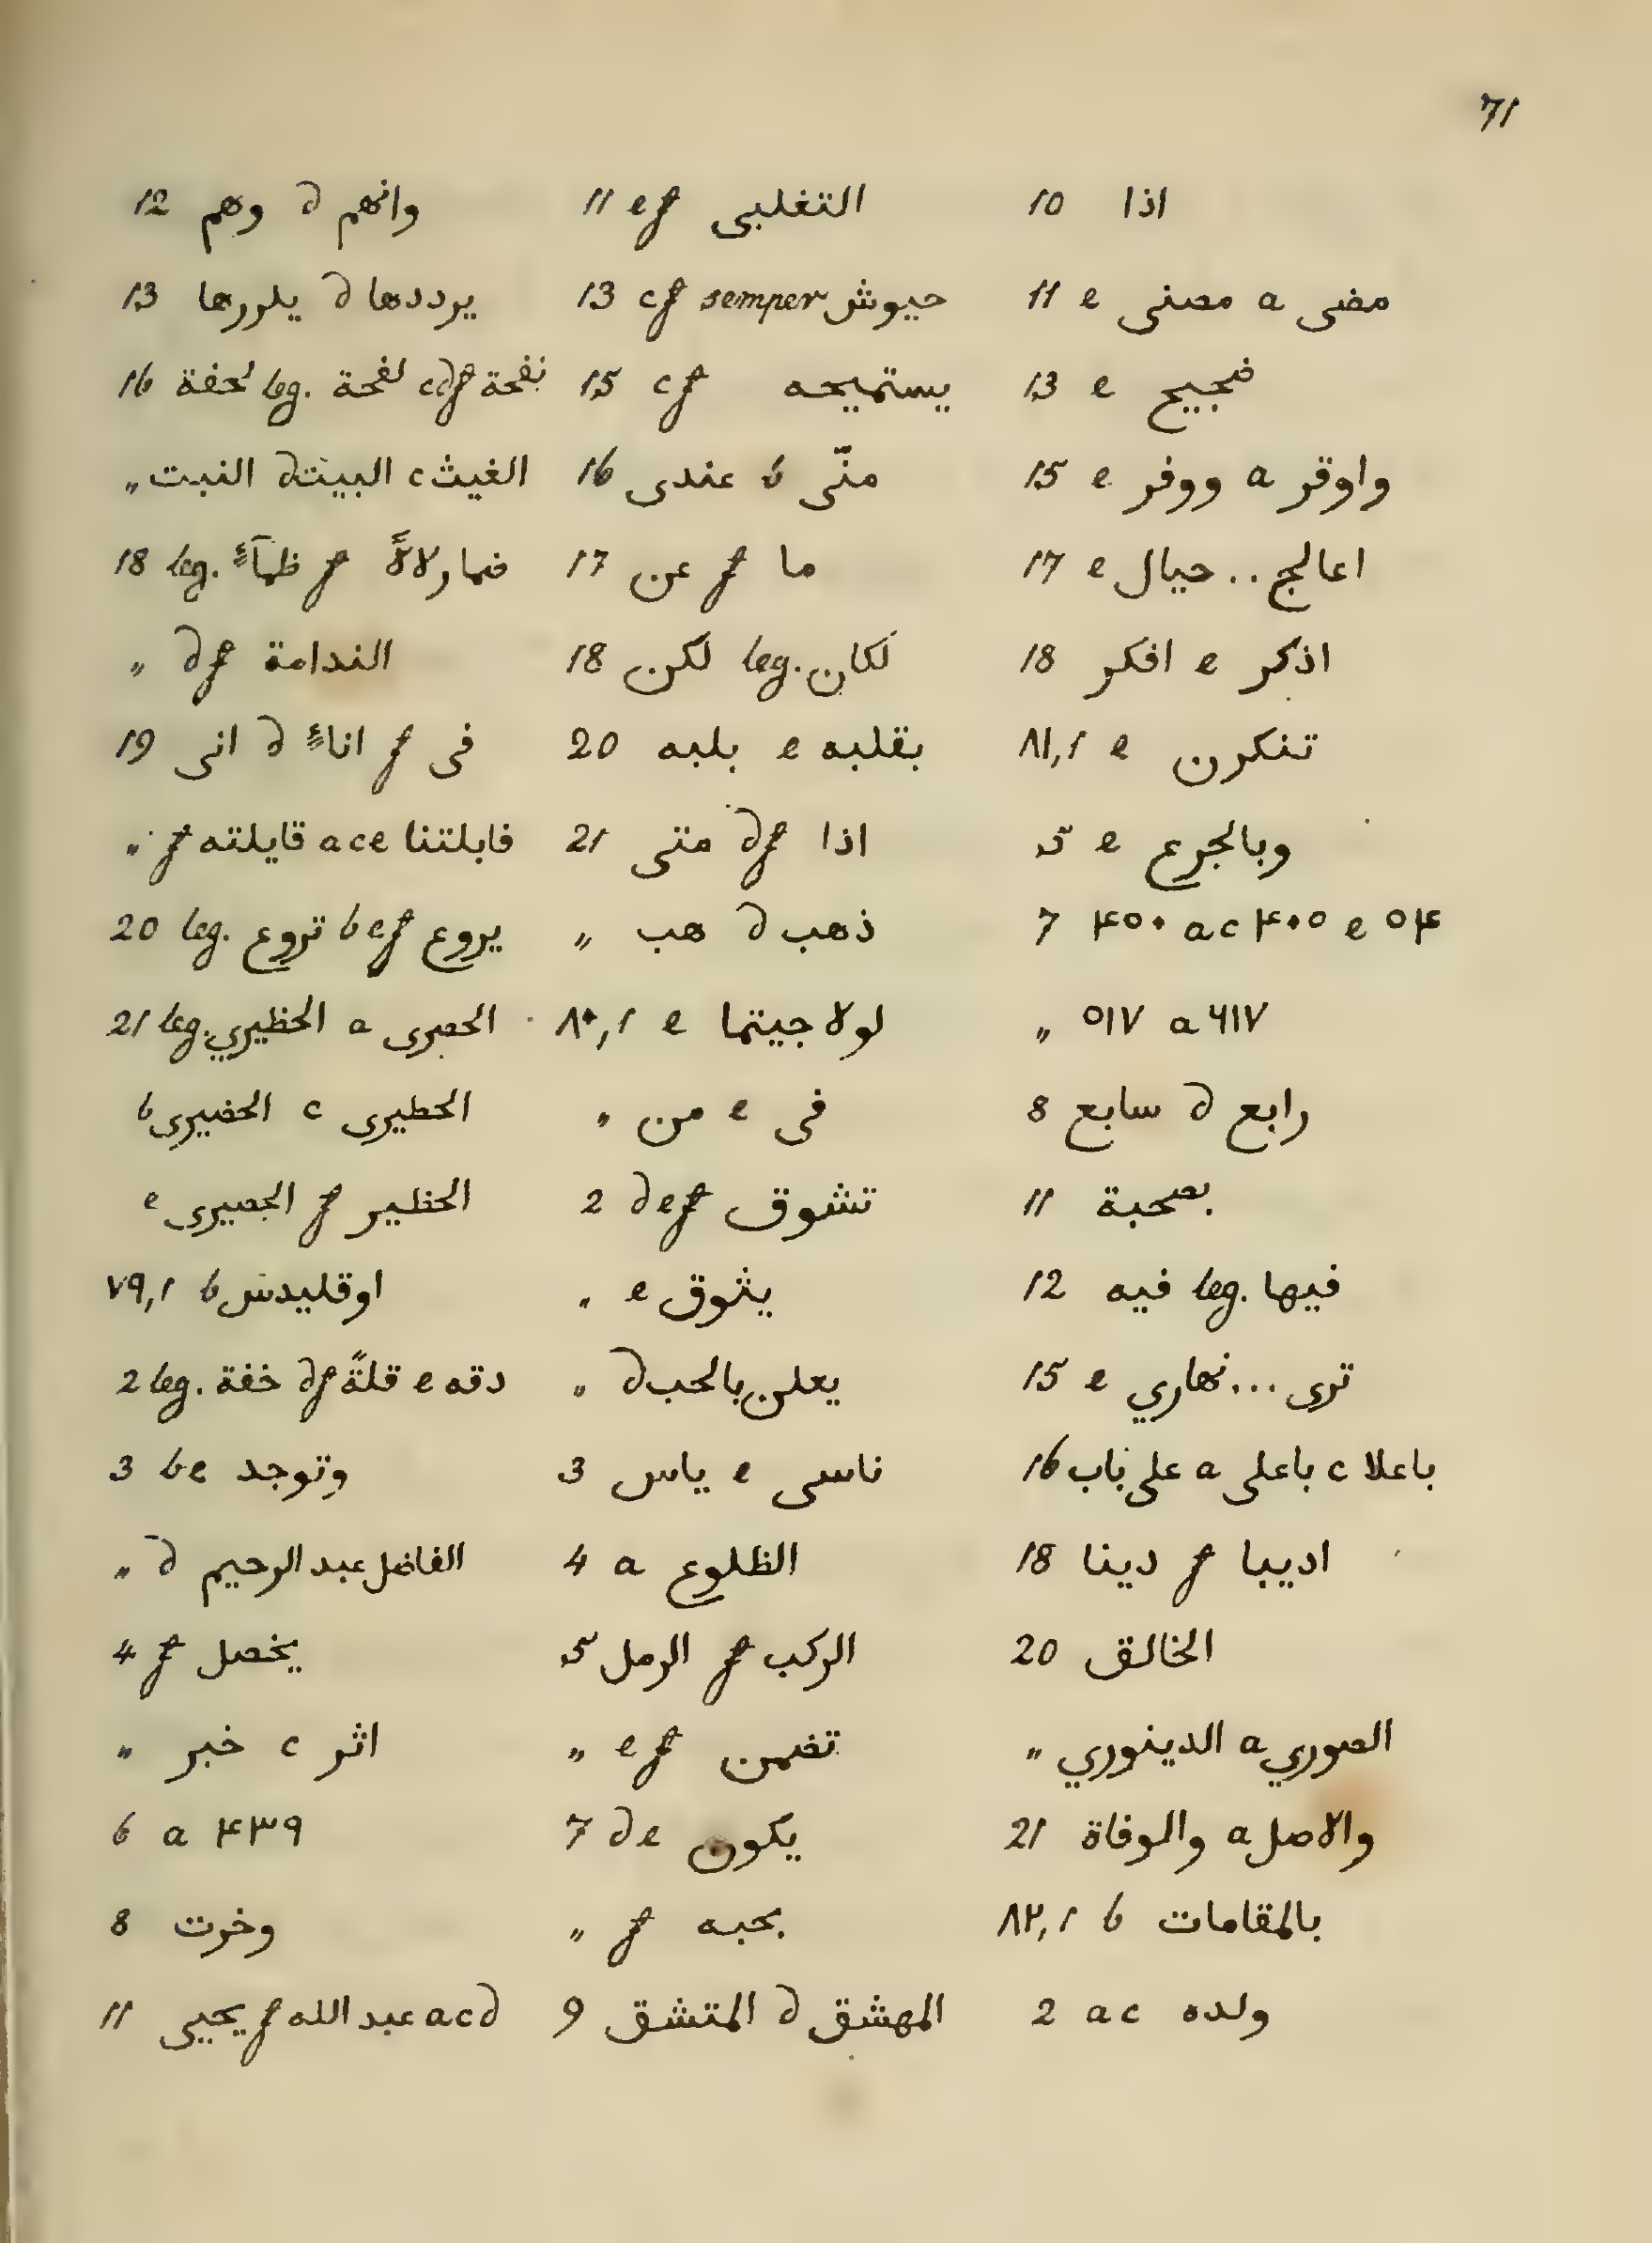 71
12 وهم d وانهم
13 يلررها d يرددها
16 لحفة leg. لفحة cdf نفحة
„ النبت d البيت c الغيث
18 leg. ظمآءً f
„ df الندامة
19 انى d اناءً f فى
„ f قايلته ace فابلتنا
20 leg. تروع bef يروع
21 leg. الحظيري a الحصرى
b الحضيرى c الحطيرى
e الجصيرى f الحظير
٧٩,1 b اوقليدس
2 leg. خفة df قلةً e دقه
3 be وتوجد
„ d الفاضل عبد الرحيم
4 f يخصل
„ خبر c اثر
6 a ۴۳۹
8 وخرت
11 يحيى f عبد الله acd
11 ef التغلبى
13 cf semper جيوش
15 cf يستميحه
16 عندى b منّى
17 عن f ما
18 لكن leg. لكان
20 بلبه e بقلبه
21 متى df اذا
„ هب d ذهب
٨٠,1 e لولا جيتما
„ من e فى
2 def تشوق
„ e يثوق
„ d يعلن بالحب
3 ياس e ناسى
4 a الظلوع
5 الرمل f الركب
„ ef تضمن
7 de يكون
„ f بحبه
9 المتشق d المهشق
10 اذا
11 e مصنى a مضى
13 e ضجيج
15 e ووفر a واوقر
17 e اعالج .. حيال
18 افكر e اذكر
٨١,1 e تنكرن
5 e وبالجرع
7 ۴۵۰ ac ۴۰۵ e ۵۴
„ ٥١٧ a ٦١٧
8 سابع d رابع
11 بصحبة
12 فيه leg. فيها
15 e ترى ... نهاري
16 على باب a باعلى c باعلا
18 دينا f اديبا
20 الخالق
„ الدينوري a الصوري
21 والوفاة a والاصل
٨٢,1 b بالمقامات
2 ac ولده